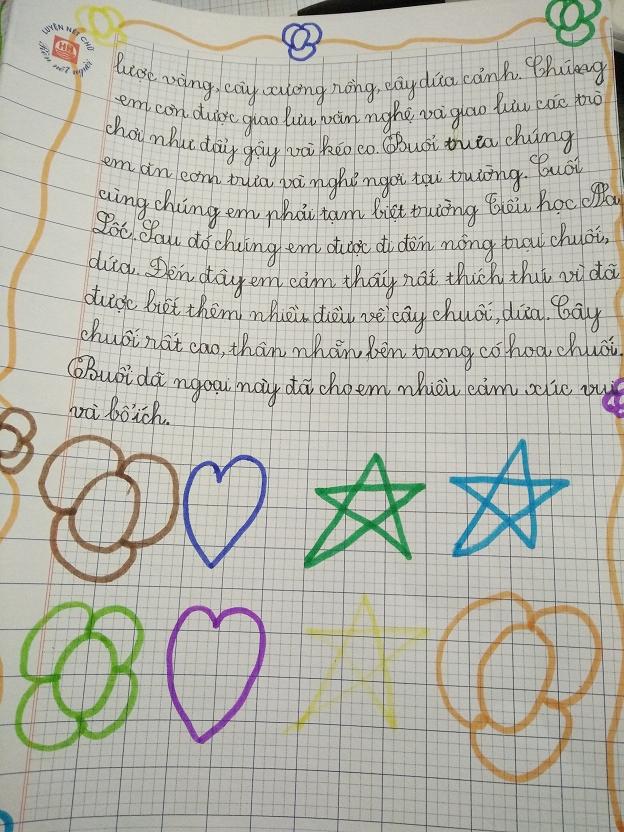 LUYỆN NÉT CHỮ
HS
Rèn nết người
lược vàng, cây xương rồng, cây dứa cảnh. Chúng
em còn được giao lưu văn nghệ và giao lưu các trò
chơi như đẩy gậy và kéo co. Buổi trưa chúng
em ăn cơm trưa và nghỉ ngơi tại trường. Cuối
cùng chúng em phải tạm biệt trường Tiểu học
Lốc. Sau đó chúng em được đi đến nông trại chuối,
dứa. Đến đây em cảm thấy rất thích thú vì đã
được biết thêm nhiều điều về cây chuối, dứa. Cây
chuối rất cao, thân nhẵn, bên trong có hoa chuối.
Buổi dã ngoại này đã cho em nhiều cảm xúc vui
và bổ ích.